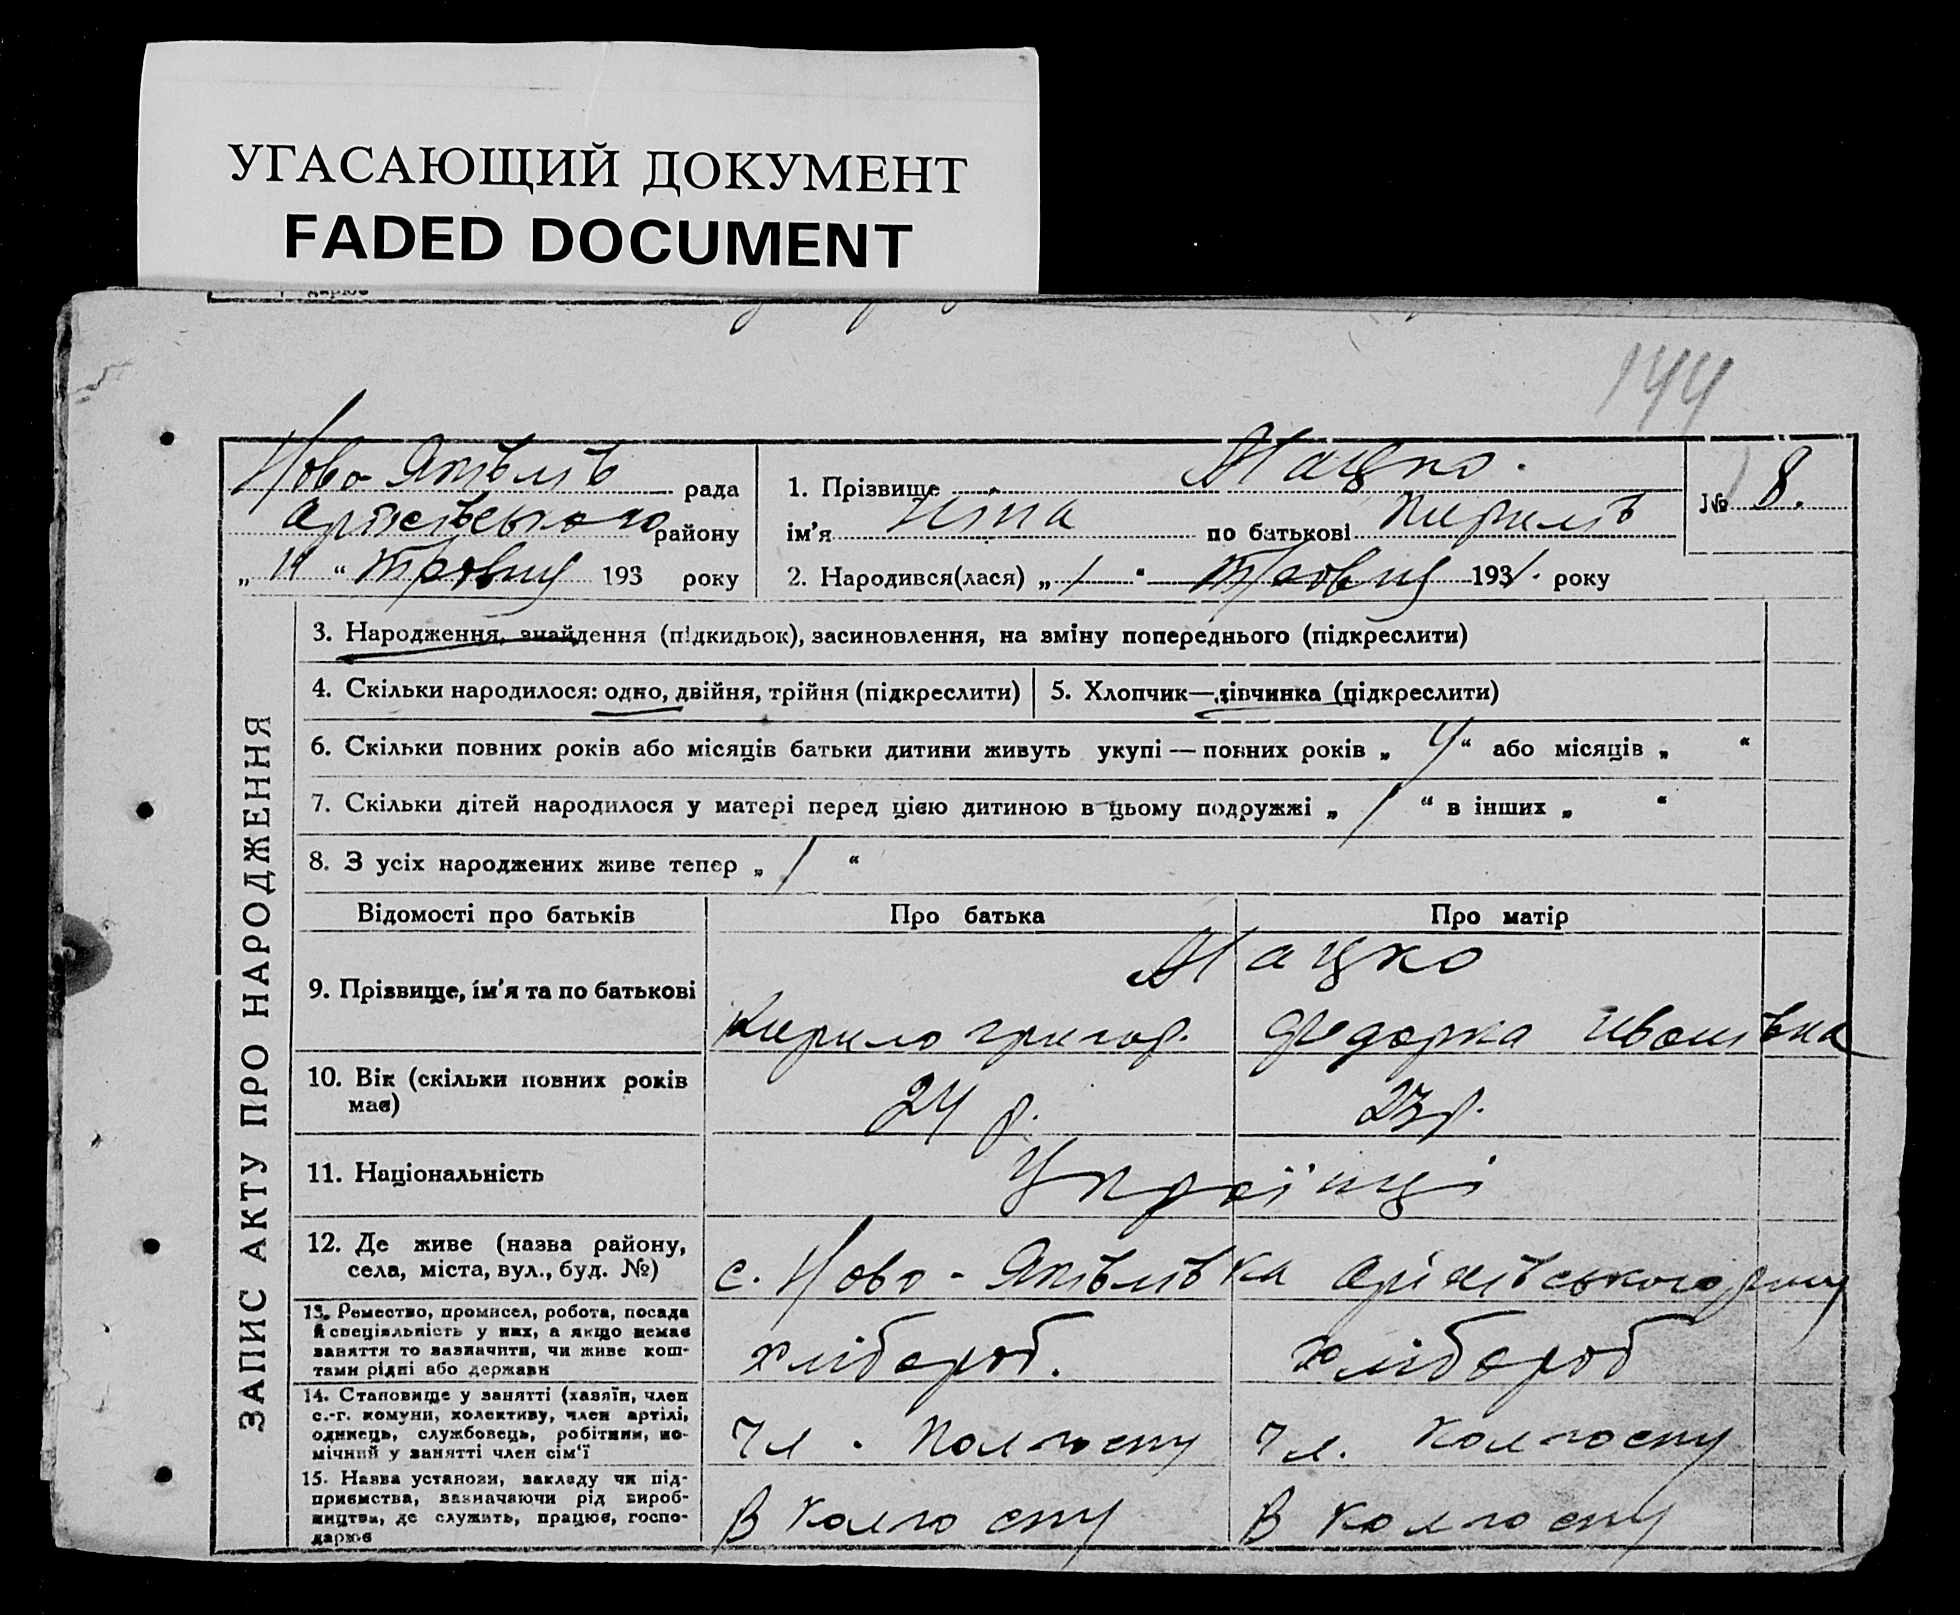 УГАСАЮЩИЙ ДОКУМЕНТ
FADED DOCUMENT
144
Ново-Яківлів рада
Оріхівського району
„ 14 “ травня 193 року
1. Прізвище Мацко.
ім’я Ніна по батькові Кирилів
2. Народився(лася) „ 1 “ травня 1931. року
№ 8.
ЗАПИС АКТУ ПРО НАРОДЖЕННЯ
3. Народження, знайдення (підкидьок), засиновлення, на зміну попереднього (підкреслити)
4. Скільки народилося: одно, двійня, трійня (підкреслити)
5. Хлопчик—дівчинка (підкреслити)
6. Скільки повних років або місяців батьки дитини живуть укупі — повних років „ 4 “ або місяців „ “
7. Скільки дітей народилося у матері перед цією дитиною в цьому подружжі „ 1 “ в інших „ “
8. З усіх народжених живе тепер „ 1 “
Відомості про батьків
Про батька
Про матір
9. Прізвище, ім’я та по батькові
Мацко
Кирило Григор.
Федорка Іванівна
10. Вік (скільки повних років
має)
24 р.
23 р.
11. Національність
Українці
12. Де живе (назва району,
села, міста, вул., буд. №)
с. Ново-Яківлівка Оріхівського р-ну
13. Ремество, промисел, робота, посада
й спеціяльність у них, а якщо немає
заняття то зазначити, чи живе кош-
тами рідні або держави
хлібороб.
хлібороб
14. Становище у занятті (хазяїн, член
с.-г. комуни, колективу, член артілі,
одинець, службовець, робітник, по-
мічний у занятті член сім’ї
чл. колгоспу
чл. колгоспу
15. Назва установи, закладу чи під-
приємства, зазначаючи рід вироб-
ництва, де служить, працює, госпо-
дарює
В колгоспу
В колгоспу